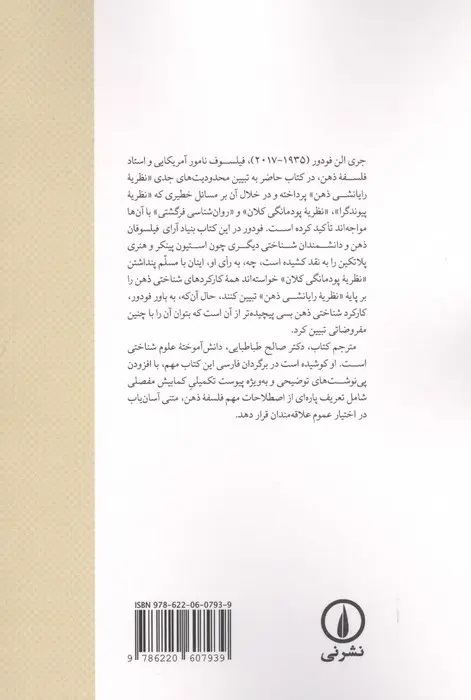 جری الن فودور (۱۹۳۵-۲۰۱۷)، فیلسوف نامور آمریکایی و استاد
فلسفهٔ ذهن، در کتاب حاضر به تبیین محدودیت‌های جدی «نظریهٔ
رایانشی ذهن» پرداخته و در خلال آن بر مسائل خطیری که «نظریهٔ
پیوندگرا»، «نظریهٔ پودمانگی کلان» و «روان‌شناسی فرگشتی» با آن‌ها
مواجه‌اند تأکید کرده است. فودور در این کتاب بنیاد آرای فیلسوفان
ذهن و دانشمندان شناختی دیگری چون استیون پینکر و هنری
پلاتکین را به نقد کشیده است، چه، به رأی او، اینان با مسلّم پنداشتن
«نظریهٔ پودمانگی کلان» خواسته‌اند همهٔ کارکردهای شناختی ذهن را
بر پایهٔ «نظریهٔ رایانشی ذهن» تبیین کنند، حال آن‌که، به باور فودور،
کارکرد شناختی ذهن بسی پیچیده‌تر از آن است که بتوان آن را با چنین
مفروضاتی تبیین کرد.
مترجم کتاب، دکتر صالح طباطبایی، دانش‌آموختهٔ علوم شناختی
است. او کوشیده است در برگردان فارسی این کتاب مهم، با افزودن
پی‌نوشت‌های توضیحی و به‌ویژه پیوست تکمیلیِ کمابیش مفصلی
شامل تعریف پاره‌ای از اصطلاحات مهم فلسفهٔ ذهن، متنی آسان‌یاب
در اختیار عموم علاقه‌مندان قرار دهد.
ISBN 978-622-06-0793-9
9 786220 607939
نشرنی